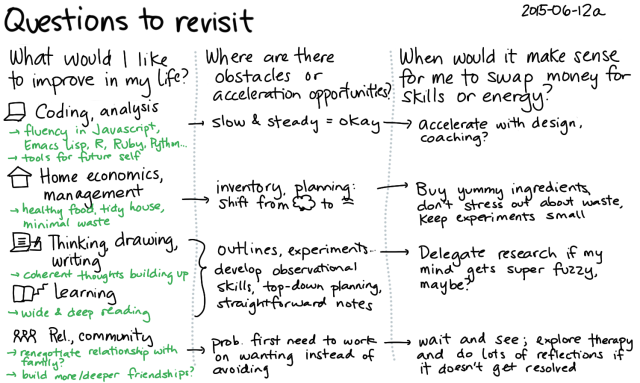 Questions to revisit
2015-06-12a
What would I like
to improve in my life?
Where are there
obstacles or
acceleration opportunities?
When would it make sense
for me to swap money for
skills or energy?
Coding, analysis
→ fluency in Javascript,
Emacs Lisp, R, Ruby, Python...
→ tools for future self
→ slow & steady = okay
→ accelerate with design,
coaching?
Home economics,
management
→ healthy food, tidy house,
minimal waste
→ inventory, planning:
shift from to
→ Buy yummy ingredients,
don't stress out about waste,
keep experiments small
Thinking, drawing,
writing
→ coherent thoughts building up
Learning
→ wide & deep reading
outlines, experiments...
develop observational
skills, top-down planning,
straightforward notes
→ Delegate research if my
mind gets super fuzzy,
maybe?
Rel., community
→ renegotiate relationship with
family?
→ build more/deeper friendships?
→ prob. first need to work
on wanting instead of
avoiding
→ wait and see; explore therapy
and do lots of reflections if
it doesn't get resolved